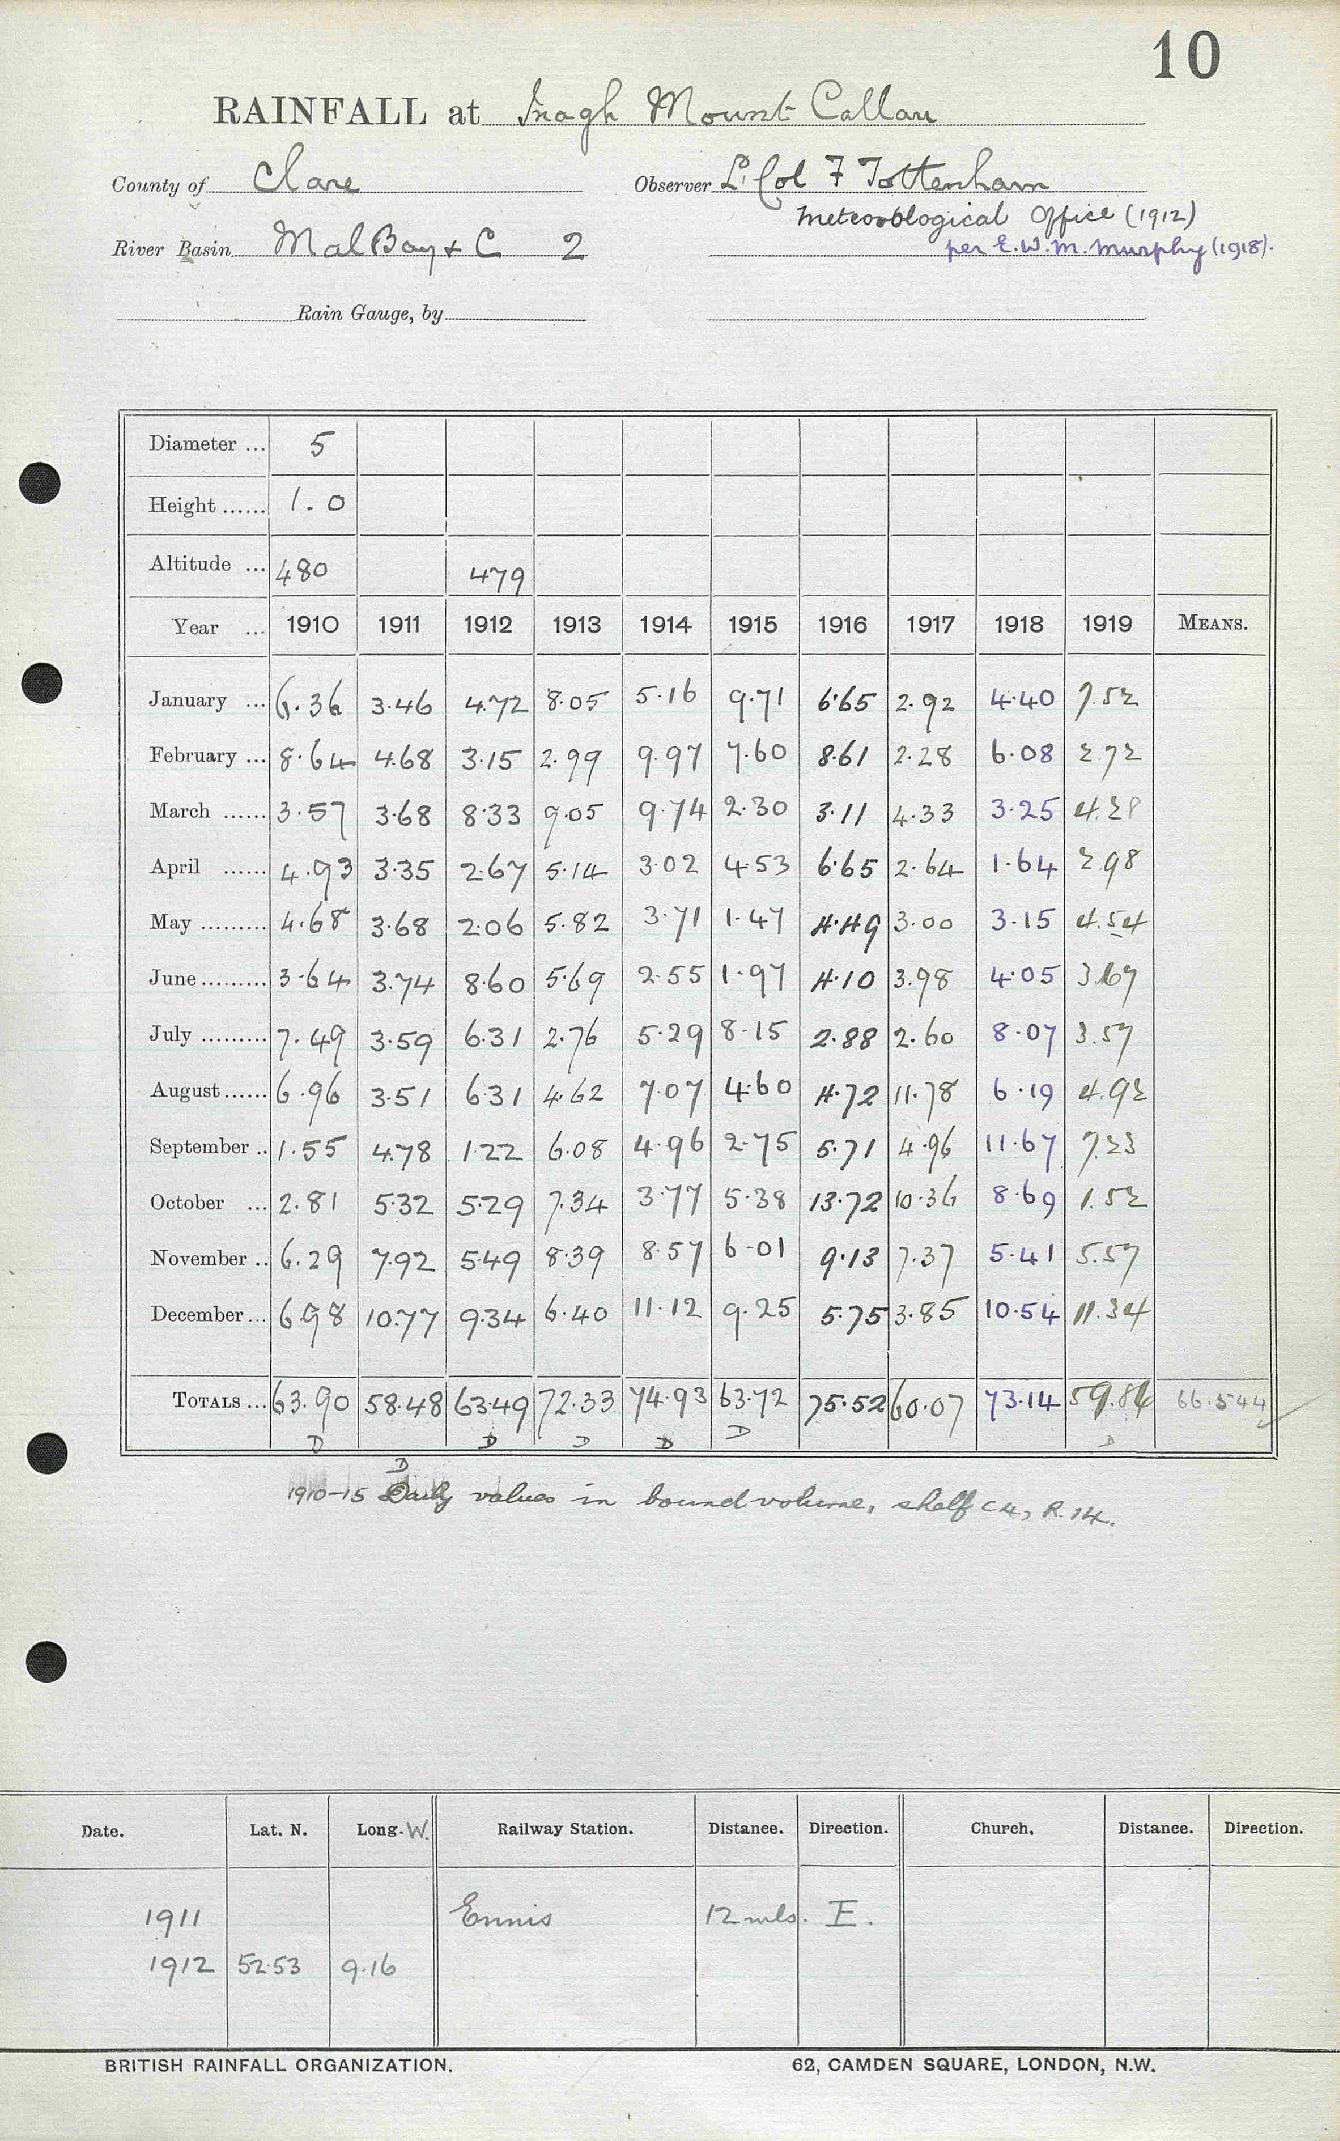 10
RAINFALL at Inagh Mount Callan
County of Clare Observer Lt Col F Tottenham
Meteorological Office (1912)
River Basin Mal Bay & C 2 per E.W.M. Murphy (1918).
Rain Gauge, by
Diameter ... 5
Height ...... 1.0
Altitude ... 480 479
Year ... 1910 1911 1912 1913 1914 1915 1916 1917 1918 1919 MEANS.
January ... 6.36 3.46 4.72 8.05 5.16 9.71 6.65 2.92 4.40 7.52
February ... 8.64 4.68 3.15 2.99 9.97 7.60 8.61 2.28 6.08 2.72
March ...... 3.57 3.68 8.33 9.05 9.74 2.30 3.11 4.33 3.25 4.28
April ...... 4.93 3.35 2.67 5.14 3.02 4.53 6.65 2.64 1.64 2.98
May ......... 4.68 3.68 2.06 5.82 3.71 1.47 4.49 3.00 3.15 4.54
June ......... 3.64 3.74 8.60 5.69 2.55 1.97 4.10 3.98 4.05 3.67
July ......... 7.49 3.59 6.31 2.76 5.29 8.15 2.88 2.60 8.07 3.57
August ...... 6.96 3.51 6.31 4.62 7.07 4.60 4.72 11.78 6.19 4.92
September .. 1.55 4.78 1.22 6.08 4.96 2.75 5.71 4.96 11.67 7.23
October ... 2.81 5.32 5.29 7.34 3.77 5.38 13.72 10.36 8.69 1.52
November .. 6.29 7.92 5.49 8.39 8.57 6.01 9.13 7.37 5.41 5.57
December ... 6.98 10.77 9.34 6.40 11.12 9.25 5.75 3.85 10.54 11.34
TOTALS ... 63.90 58.48 63.49 72.33 74.93 63.72 75.52 60.07 73.14 59.86 66.544
D D D D D D D
1910-15 Daily values in bound volume, shelf C4, R.14.
Date. Lat. N. Long. W. Railway Station. Distance. Direction. Church. Distance. Direction.
1911 Ennis 12 mls. E.
1912 52.53 9.16
BRITISH RAINFALL ORGANIZATION. 62, CAMDEN SQUARE, LONDON, N.W.